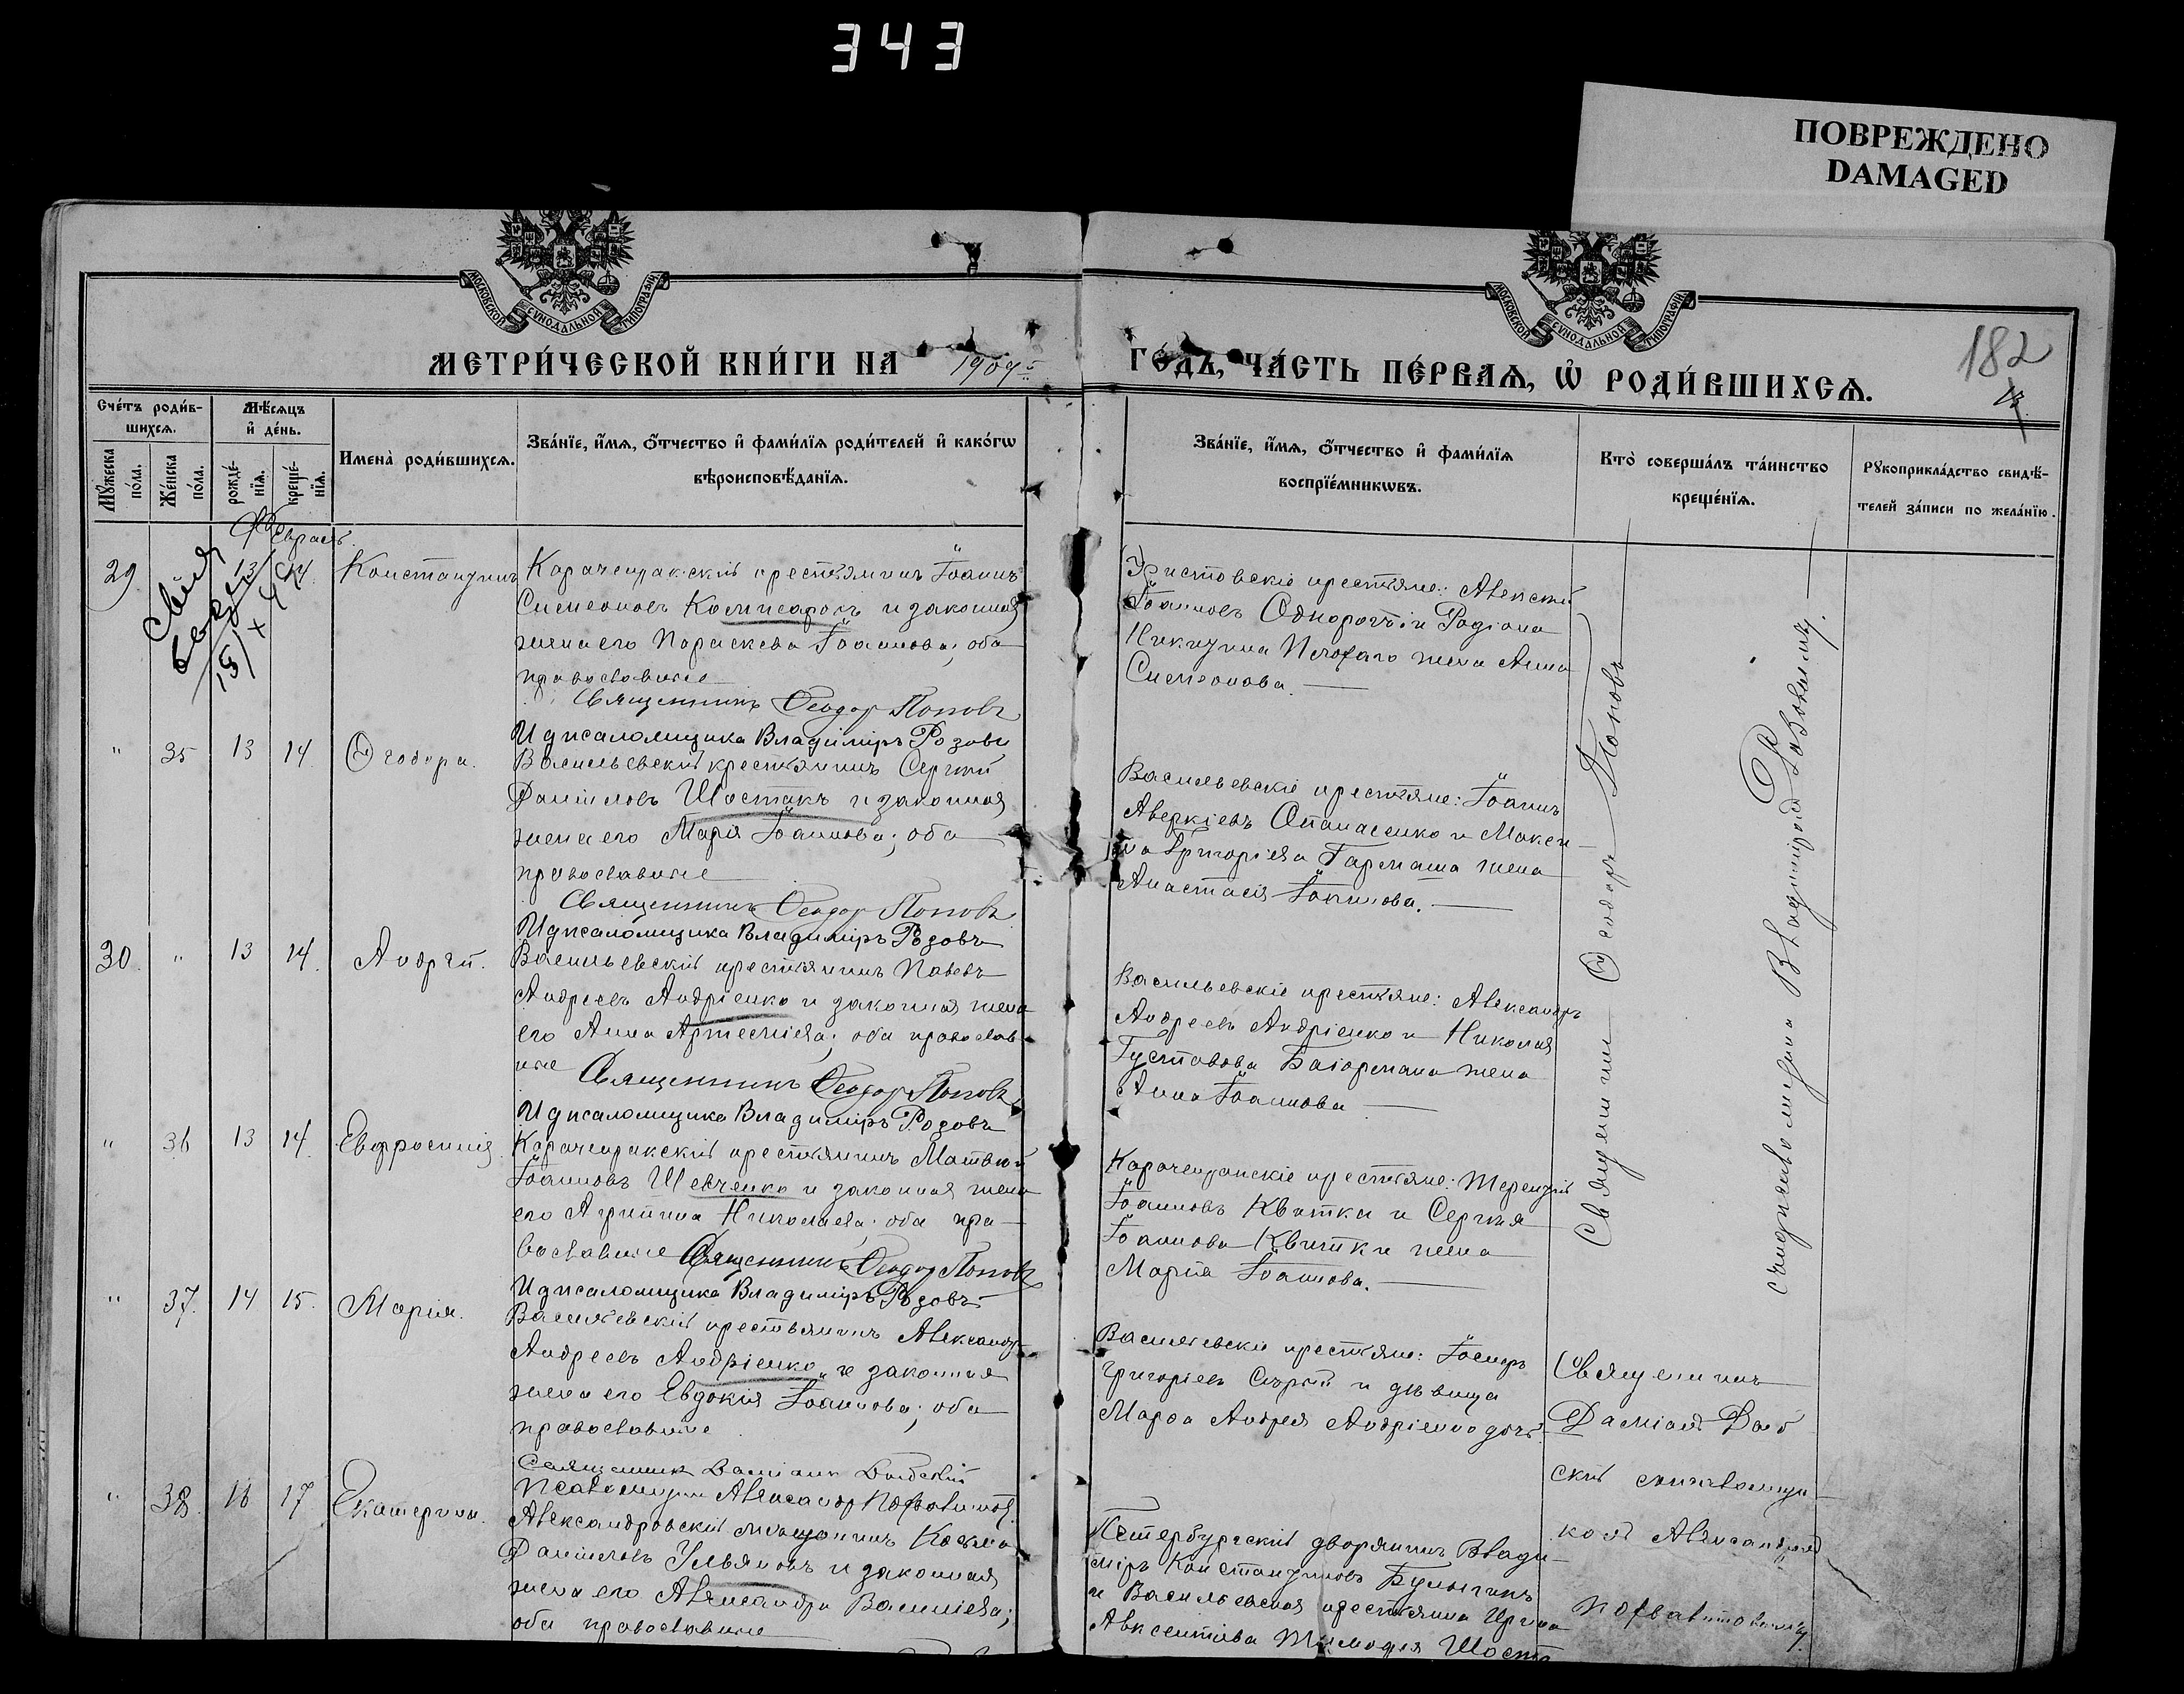 343
ПОВРЕЖДЕНО
DAMAGED
МОСКОВСКОЙ СѴНОДАЛЬНОЙ ТИПОГРАФІИ
МОСКОВСКОЙ СѴНОДАЛЬНОЙ ТИПОГРАФІИ
МЕТРИ́ЧЕСКОЙ КНИ́ГИ НА 1909 ГО́ДЪ, ЧА́СТЬ ПЕ́РВАѦ, Ѡ҆ РОДИ́ВШИХСѦ.
182
Сче́тъ роди́в-
шихсѧ.
Мѣ́сѧцъ
и҆ де́нь.
Имена̀ роди́вшихсѧ.
Зва́нїе, и҆́мѧ, ѻ҆́тчество и҆ фами́лїѧ роди́телей и҆ како́гѡ
вѣроисповѣ́данїѧ.
Зва́нїе, и҆́мѧ, ѻ҆́тчество и҆ фами́лїѧ
воспрїе́мникѡвъ.
Кто̀ соверша́лъ та́инство
креще́нїѧ.
Рꙋкоприкла́дство свидѣ́-
телей за́писи по жела́нїю.
Мꙋ́жеска
по́ла.
Же́нска
по́ла.
рожде́-
нїѧ.
креще́-
нїѧ.
Февраль.
29 13 14. Константинъ
Карачекракскій крестьянинъ Іоаннъ
Симеоновъ Комисаровъ и законная
жена его Параскева Іоаннова; оба
православные
Священникъ Ѳеодоръ Поповъ
И д псаломщика Владиміръ Розовъ
крестьяне: Алексѣй
Іоанновъ и Родіона
Никитина жена Анна
Симеонова.
" 35 13 14. Ѳеодора.
Васильевскій крестьянинъ Сергій
Даниловъ Шостакъ и законная
жена его Марія Іоаннова; оба
православные
Священникъ Ѳеодоръ Поповъ
И д псаломщика Владиміръ Розовъ
Васильевскіе крестьяне: Іоаннъ
Аверкіевъ Опанасенко и Макси-
ма Григоріева Гармаша жена
Анастасія Іакимова.
30. " 13 14. Андрей.
Васильевскій крестьянинъ Павелъ
Андреевъ Андріенко и законная жена
его Анна Артеміева; оба православ-
ные Священникъ Ѳеодоръ Поповъ
И д псаломщика Владиміръ Розовъ
Васильевскіе крестьяне: Александръ
Андреевъ Андріенко и Николая
Густавова жена
Анна Іоаннова
" 36 13 14. Евфросинія.
Карачекракскій крестьянинъ Матвей
Іоанновъ Шевченко и законная жена
его Агрипина Николаева; оба пра-
вославные Священникъ Ѳеодоръ Поповъ
И д псаломщика Владиміръ Розовъ
Карачекракскіе крестьяне: Терентій
Іоанновъ Квитка и Сергѣя
Іоаннова Квитки жена
Марія Іоаннова.
Священникъ Ѳеодоръ Поповъ
Владиміромъ Розовымъ.
" 37. 14 15. Марія.
Васильевскій крестьянинъ Александръ
Андреевъ Андріенко и законная
жена его Евдокія Іоаннова; оба
православные
Священникъ Даміанъ
Псаломщикъ Александръ
Васильевскіе крестьяне: Іосифъ
Григоріевъ Сѣрый и дѣвица
Марѳа Андрея Андріенко дочь.
Священникъ
Даміанъ
скій съ псаломщи-
комъ Александромъ
" 38. 16 17 Екатерина.
Александровскій мѣщанинъ Косьма
Даниловъ Ульяновъ и законная
жена его Александра Васильева;
оба православные
Петербургскій дворянинъ Влади-
міръ Константиновъ Булыгинъ
и Васильевская крестьянка Ирина
Авксентіева Шост